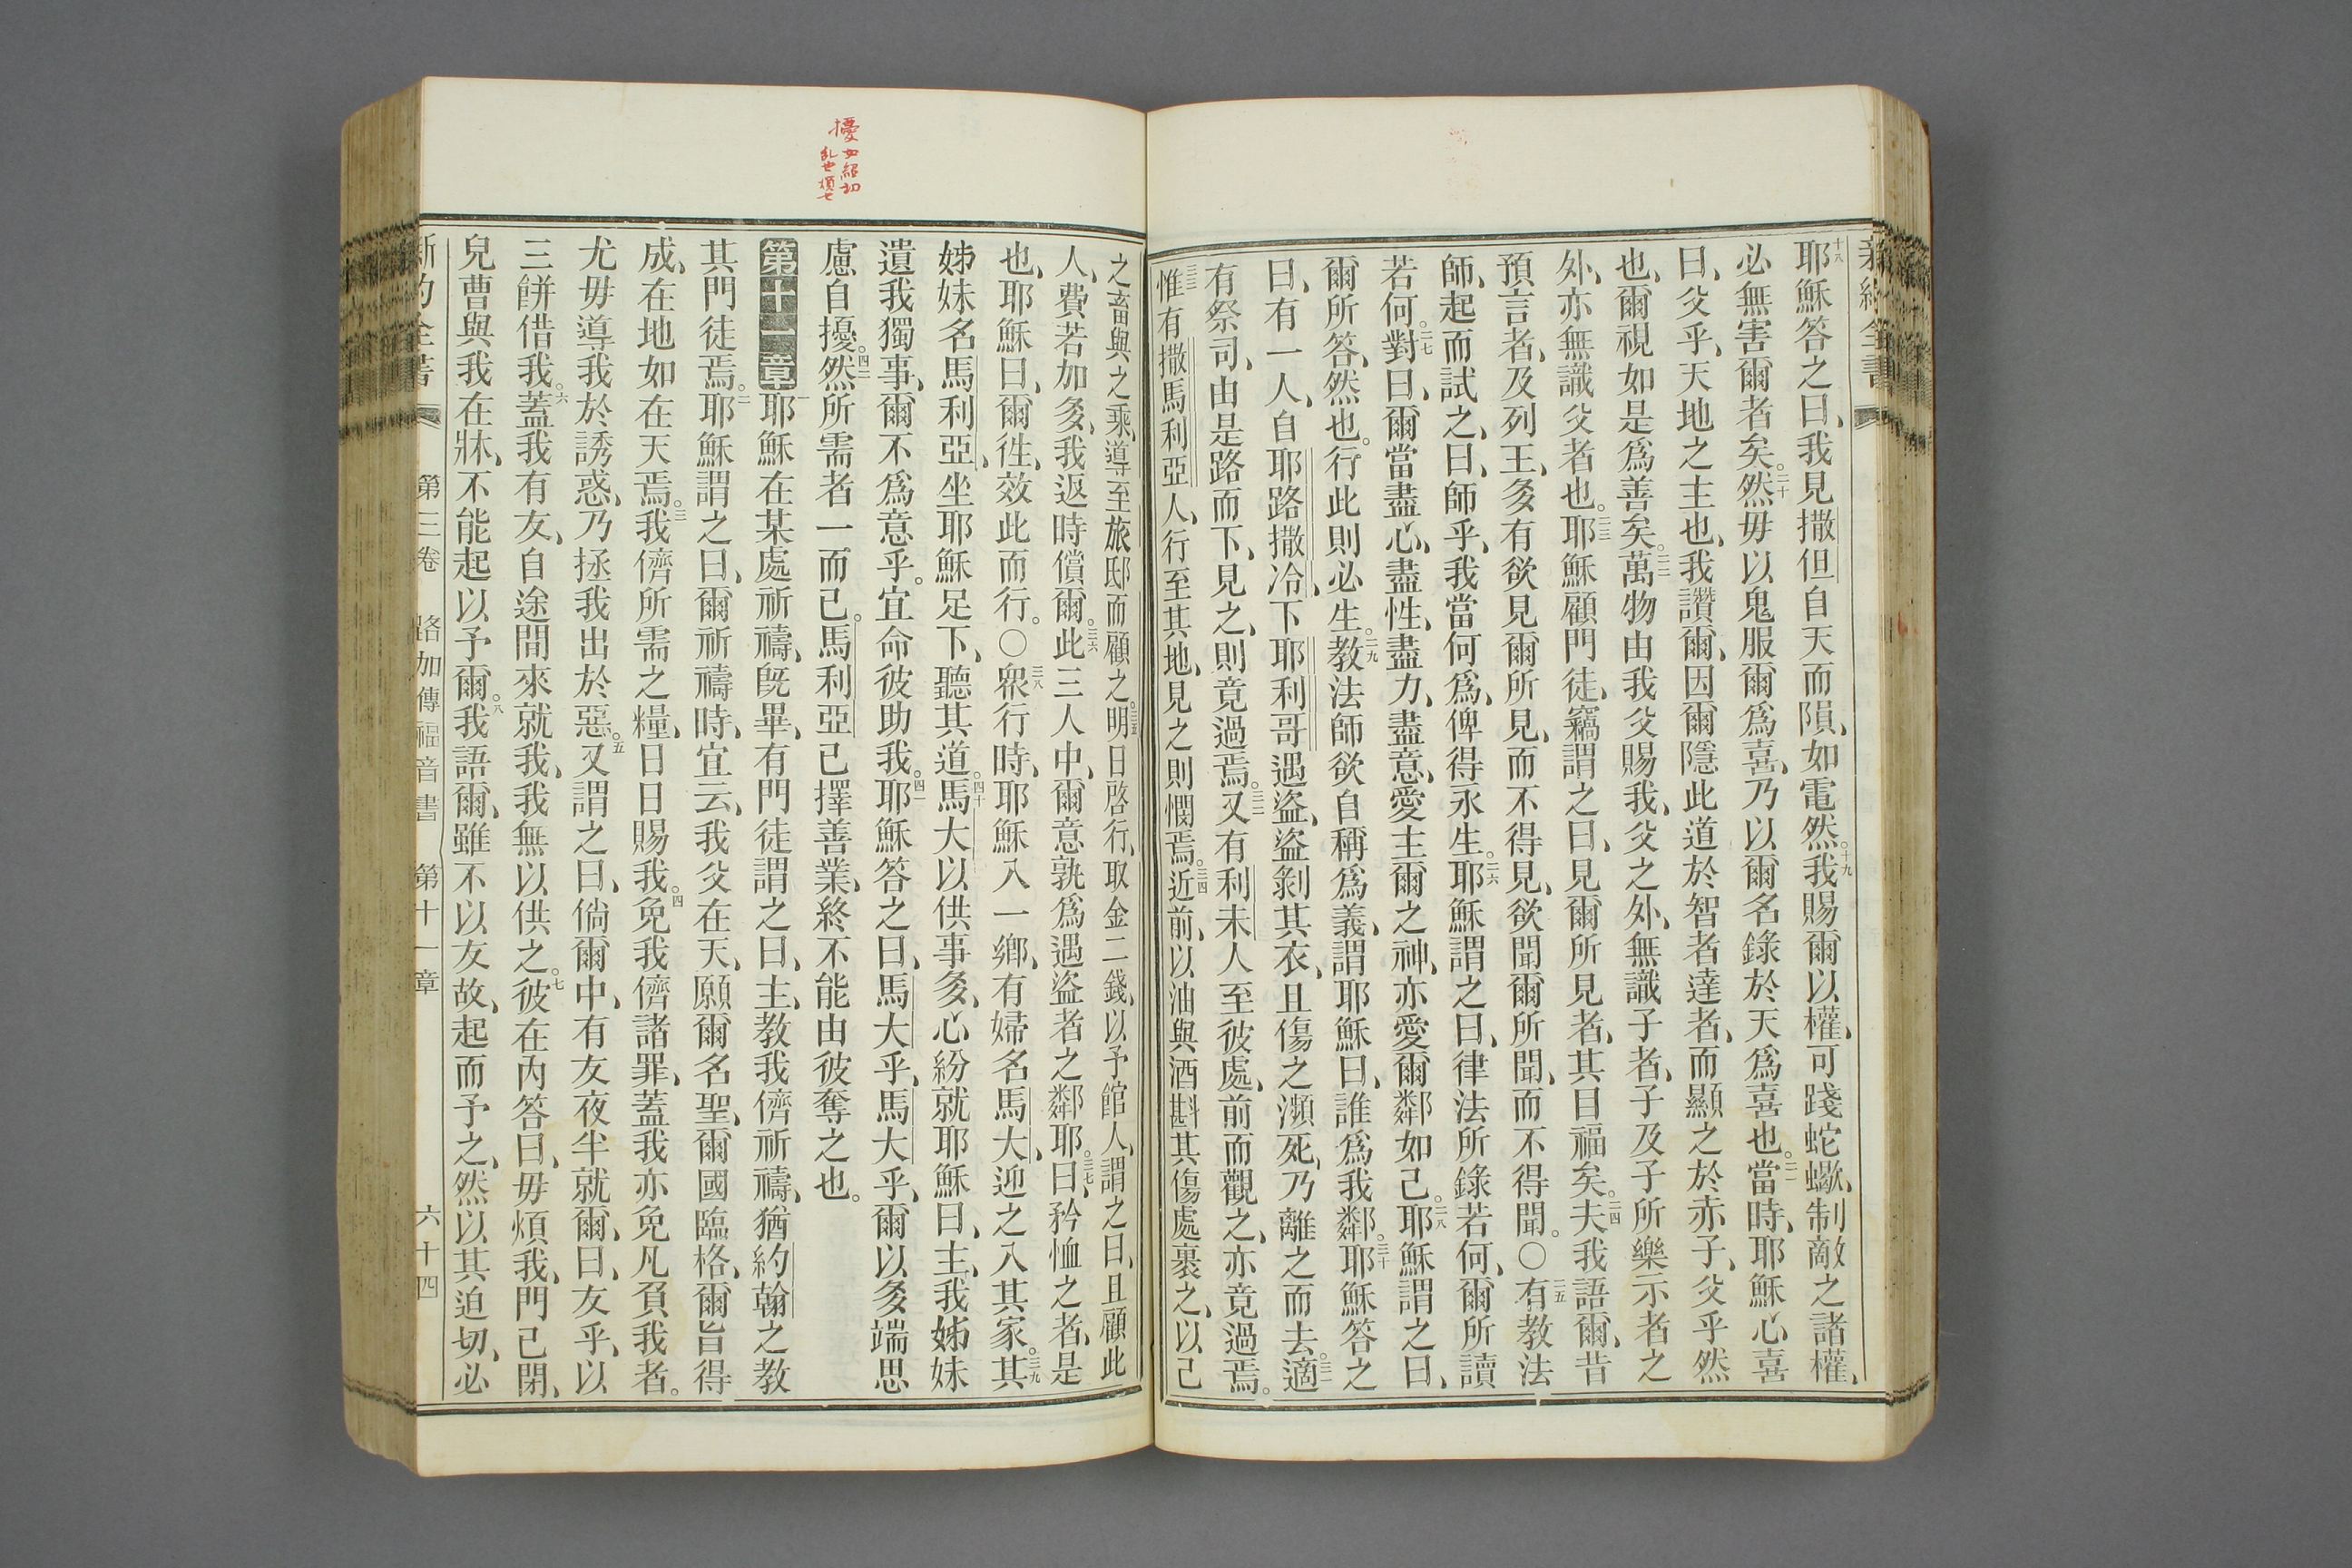 新約全書
耶穌答之曰、我見撒但自天而隕、如電然。十九我賜爾以權、可踐蛇蠍、制敵之諸權、
必無害爾者矣。二十然毋以鬼服爾爲喜、乃以爾名錄於天爲喜也。二一當時、耶穌心喜
曰、父乎、天地之主也、我讚爾、因爾隱此道於智者達者、而顯之於赤子、父乎然
也、爾視如是爲善矣。二二萬物由我父賜我、父之外、無識子者、子及子所樂示者之
外、亦無識父者也。二三耶穌顧門徒、竊謂之曰、見爾所見者、其目福矣。二四夫我語爾、昔
預言者、及列王、多有欲見爾所見、而不得見、欲聞爾所聞、而不得聞。〇二五有教法
師、起而試之、曰、師乎、我當何爲、俾得永生。二六耶穌謂之曰、律法所錄若何、爾所讀
若何。二七對曰、爾當盡心、盡性、盡力、盡意、愛主爾之神、亦愛爾鄰如己。二八耶穌謂之曰、
爾所答、然也。行此則必生。二九教法師欲自稱爲義、謂耶穌曰、誰爲我鄰。三十耶穌答之
曰、有一人、自耶路撒冷、下耶利哥遇盜、盜剝其衣、且傷之瀕死、乃離之而去。三一適
有祭司、由是路而下、見之、則竟過焉。三二又有利未人至彼處、前而觀之、亦竟過焉。
三三惟有撒馬利亞人、行至其地、見之則憫焉。三四近前、以油與酒斟其傷處裹之、以己
之畜與之乘、導至旅邸而顧之。三五明日啓行、取金二錢、以予館人、謂之曰、且顧此
人、費若加多、我返時償爾。三六此三人中、爾意孰爲遇盜者之鄰耶。三七曰、矜恤之者、是
也、耶穌曰、爾往、效此而行。〇三八衆行時、耶穌入一鄉、有婦名馬大、迎之入其家。三九其
姊妹名馬利亞、坐耶穌足下、聽其道。四十馬大以供事多、心紛就耶穌曰、主、我姊妹
遺我獨事、爾不爲意乎。宜命彼助我。四一耶穌答之、曰、馬大乎、馬大乎、爾以多端思
慮自擾。四二然所需者一而已。馬利亞已擇善業、終不能由彼奪之也。
第十一章 一耶穌在某處祈禱、既畢、有門徒謂之曰、主、教我儕祈禱、猶約翰之教
其門徒焉。二耶穌謂之曰、爾祈禱時、宜云、我父在天、願爾名聖、爾國臨格、爾旨得
成、在地如在天焉。三我儕所需之糧、日日賜我。四免我儕諸罪、蓋我亦免凡負我者。
尤毋導我於誘惑、乃拯我出於惡。五又謂之曰、倘爾中、有友夜半就爾、曰、友乎、以
三餅借我。六蓋我有友、自途間來就我、我無以供之。七彼在內答曰、毋煩我、門已閉、
兒曹與我在牀、不能起以予爾。八我語爾、雖不以友故、起而予之、然以其迫切、必
新約全書 第三卷 路加傳福音書 第十一章 六十四
擾 如紹切
乱也煩也